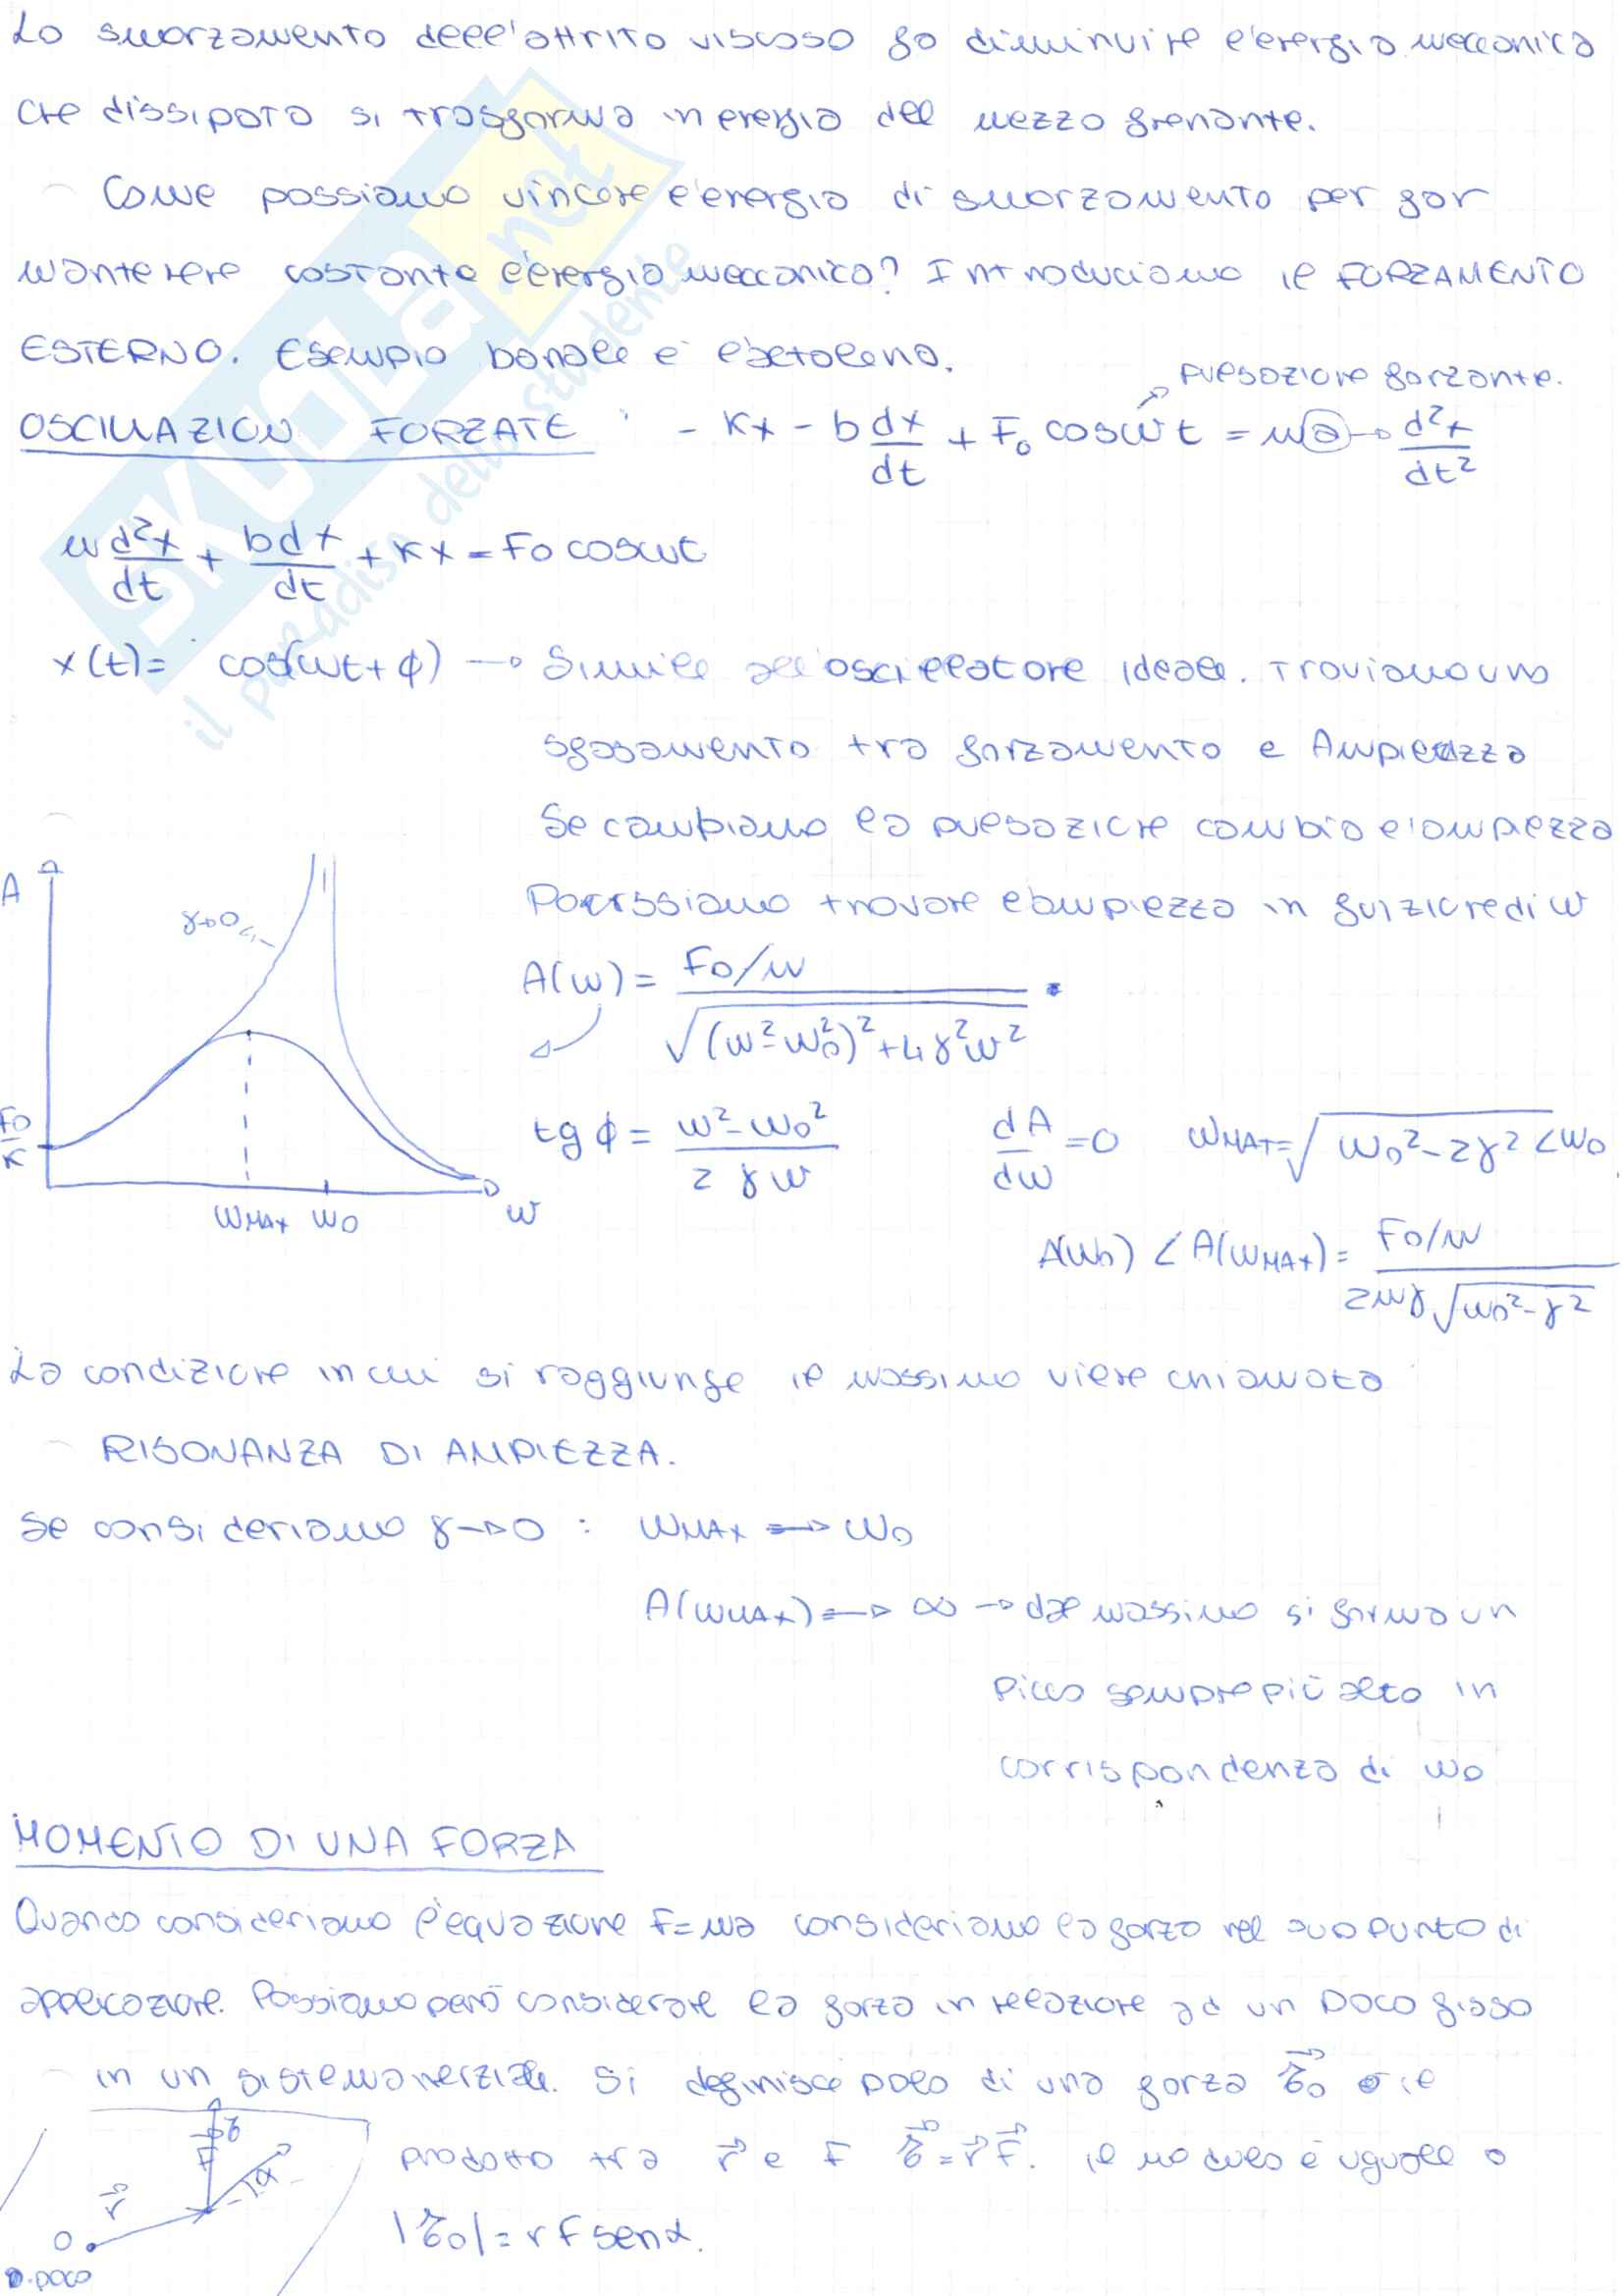 Lo smorzamento dell'attrito viscoso fa diminuire l'energia meccanica
che dissipata si trasforma in energia del mezzo frenante.
Come possiamo vincere l'energia di smorzamento per far
mantenere costante l'energia meccanica? Introduciamo il FORZAMENTO
ESTERNO. Esempio banale è l'altalena.
pulsazione forzante.
OSCILLAZIONI FORZATE : - Kx - b dx/dt + F₀ cos ωt = ma → d²x/dt²
m d²x/dt + b dx/dt + Kx = F₀ cos ωt
x(t) = cos(ωt + ϕ) → Simile all'oscillatore ideale. Troviamo uno
sfasamento tra forzamento e Ampiezza
Se cambiamo la pulsazione cambia l'ampiezza
Possiamo trovare l'ampiezza in funzione di ω
A
γ→0
F₀/K
ωMAX ω₀
ω
A(ω) = F₀/m / √((ω² - ω₀²)² + 4γ²ω²)
tg ϕ = ω² - ω₀² / 2γω
dA/dω = 0 ωMAX = √(ω₀² - 2γ²) < ω₀
A(ω₀) < A(ωMAX) = F₀/m / 2mγ√(ω₀² - γ²)
La condizione in cui si raggiunge il massimo viene chiamata
RISONANZA DI AMPIEZZA.
Se consideriamo γ → 0 : ωMAX → ω₀
A(ωMAX) → ∞ → dal massimo si forma un
picco sempre più alto in
corrispondenza di ω₀
MOMENTO DI UNA FORZA
Quando consideriamo l'equazione F=ma consideriamo la forza nel suo punto di
applicazione. Possiamo però considerare la forza in relazione ad un polo fisso
in un sistema inerziale. Si definisce polo di una forza τ⃗₀ il
prodotto tra r⃗ e F τ⃗ = r⃗ F⃗. il modulo è uguale a
|τ₀| = r F sen α.
τ
F
α
r⃗
O
polo
SKUOLA.net
il paradiso dello studente